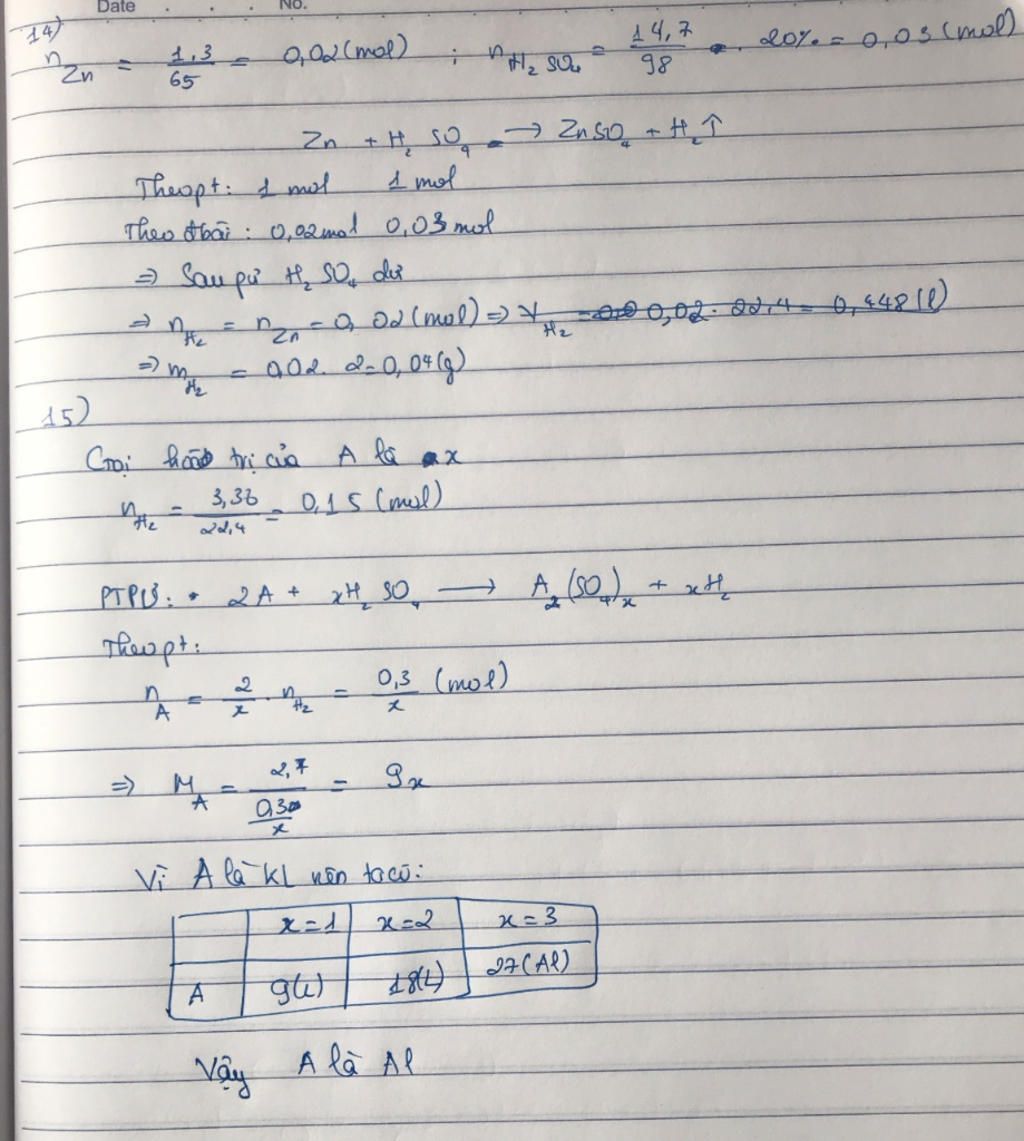 Date . . . No.
14)
n Zn = 1,3/65 = 0,02 (mol) ; n H₂SO₄ = 14,7/98 . 20% = 0,03 (mol)
Zn + H₂SO₄ → ZnSO₄ + H₂↑
Theo pt: 1 mol 1 mol
Theo đbài: 0,02mol 0,03 mol
⇒ Sau pư H₂SO₄ dư
⇒ n H₂ = n Zn = 0,02 (mol) ⇒ V H₂ = 0,02 . 22,4 = 0,448 (l)
⇒ m H₂ = 0,02 . 2 = 0,04 (g)
15)
Gọi hoá trị của A là x
n H₂ = 3,36/22,4 = 0,15 (mol)
PTPƯ: 2A + xH₂SO₄ → A₂(SO₄)ₓ + xH₂
Theo pt:
n A = 2/x . n H₂ = 0,3/x (mol)
⇒ M A = 2,7/(0,3/x) = 9x
Vì A là KL nên ta có:
x=1 x=2 x=3
A 9(L) 18(L) 27(Al)
Vậy A là Al